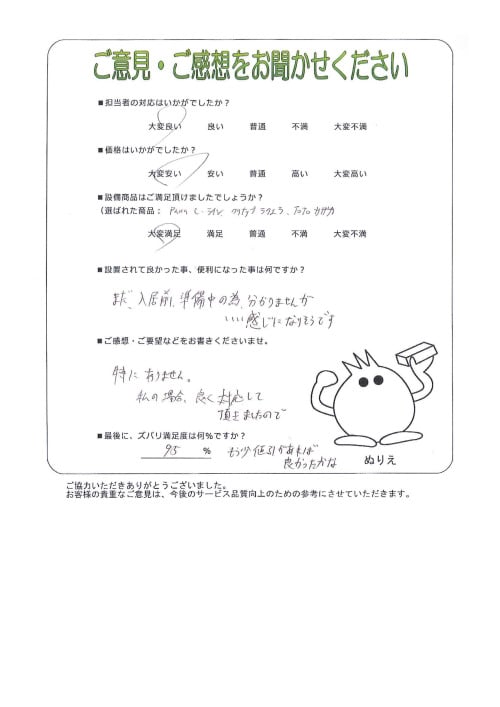 ご意見・ご感想をお聞かせください
■担当者の対応はいかがでしたか？
大変良い 良い 普通 不満 大変不満
■価格はいかがでしたか？
大変安い 安い 普通 高い 大変高い
■設備商品はご満足頂けましたでしょうか？
（選ばれた商品： L-クラス クリナップ ラクエラ、TOTO
大変満足 満足 普通 不満 大変不満
■設置されて良かった事、便利になった事は何ですか？
まだ、入居前、準備中の為、分かりませんが
いい感じになりそうです
■ご感想・ご要望などをお書きくださいませ。
特に ありません。
私の場合、良く対応して
頂きましたので
■最後に、ズバリ満足度は何％ですか？
95 ％ もう少し値引があれば
良かったかな
ぬりえ
ご協力いただきありがとうございました。
お客様の貴重なご意見は、今後のサービス品質向上のための参考にさせていただきます。